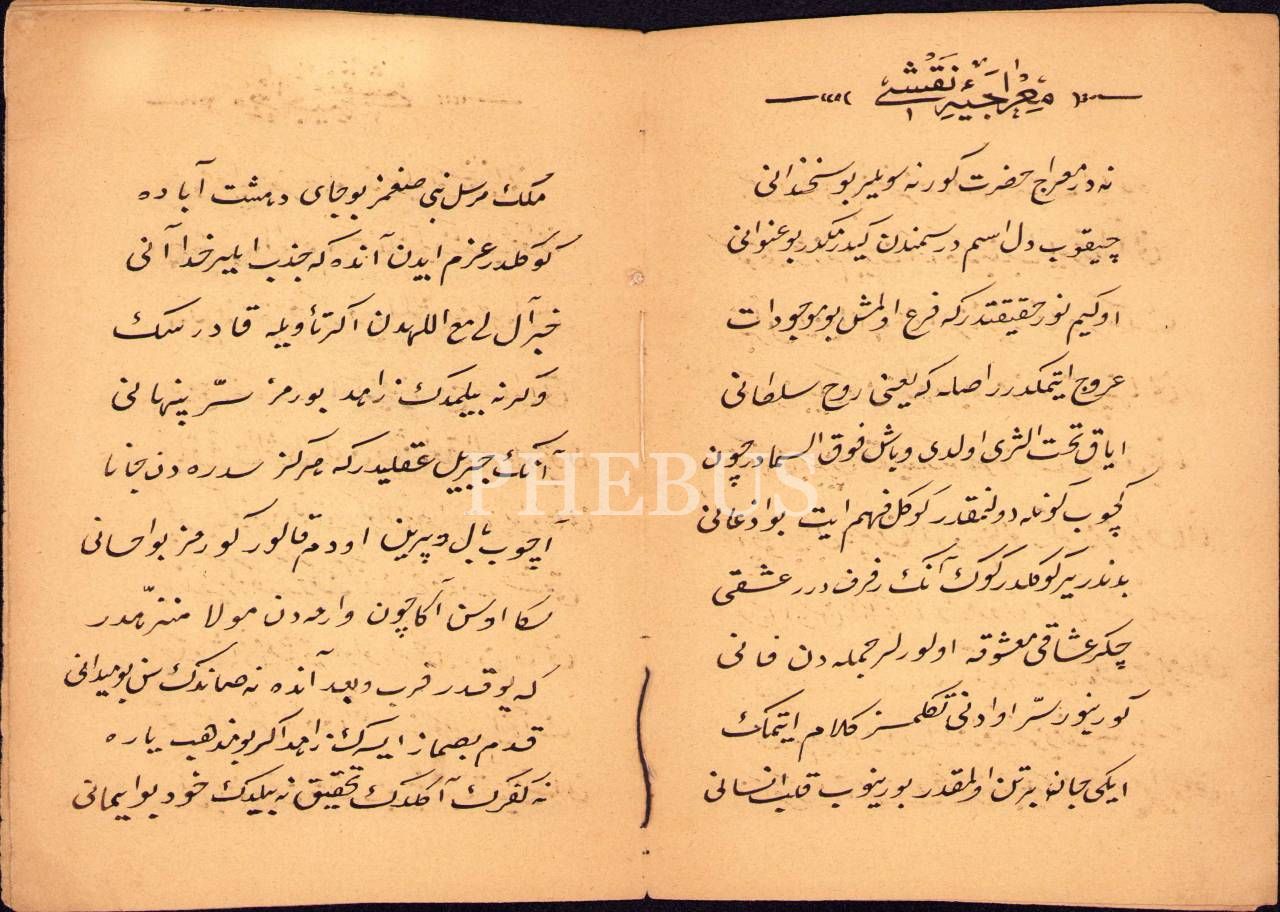 معراجیهٔ نقشی
نه در معراج حضرت كور نه سویلر بو سخندانی
چیقوب دل اسم در سمندن كیدرمكدر بو عنوانی
اوكیم نور حقیقتدر كه فرع اولمش بو موجودات
عروج ایتمكدر اصله كه یعنی روح سلطانی
ایاق تحت الثری اولدی و باش فوق السما در چون
كچوب كونله دولنمقدر كوكل فهم ایت بو اذعانی
بدندر یر كوكلدر كوك آنك رفرف در عشقی
چكر عشاقی معشوقه اولورلر جمله دن فانی
كورینور سرّ او ادنی تكلمسز كلام ایتمك
ایكی جانه بر تن اولمقدر بورینوب قلب انسانی
ملك مرسل نبی صغمز بو جای دهشت آباده
كوكلدر عزم ایدن آنده كه جذب ایلیر خدا آنی
خبر آل لی مع اللهدن اكر تأویله قادرسك
وكرنه بیلمدك زاهد بورمز سرّ پنهانی
آنك جبریل عقلیدر كه مركز سدره دن جانا
آچوب بال و پرین اودم قالور كورمز بو احسانی
سكا اوسن آكا چون وارمه دن مولا منزّهدر
كه یوقدر قرب و بعد آنده نه صاندك سن بو میدانی
قدم بصماز ایسه ك زاهد اكر بو مذهب یاره
نه كفرك آكلدك تحقیق نه بیلدك خود بو ایمانی
PHEBUS